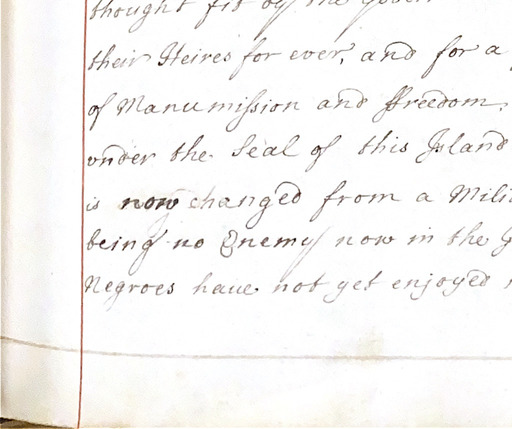 thought fit by the Gover
their Heires for ever, and for a
of Manumission and ffreedom,
vnder the Seal of this Island
is now changed from a Mili
being no Enemy now in the
Negroes haue not yet enjoyed